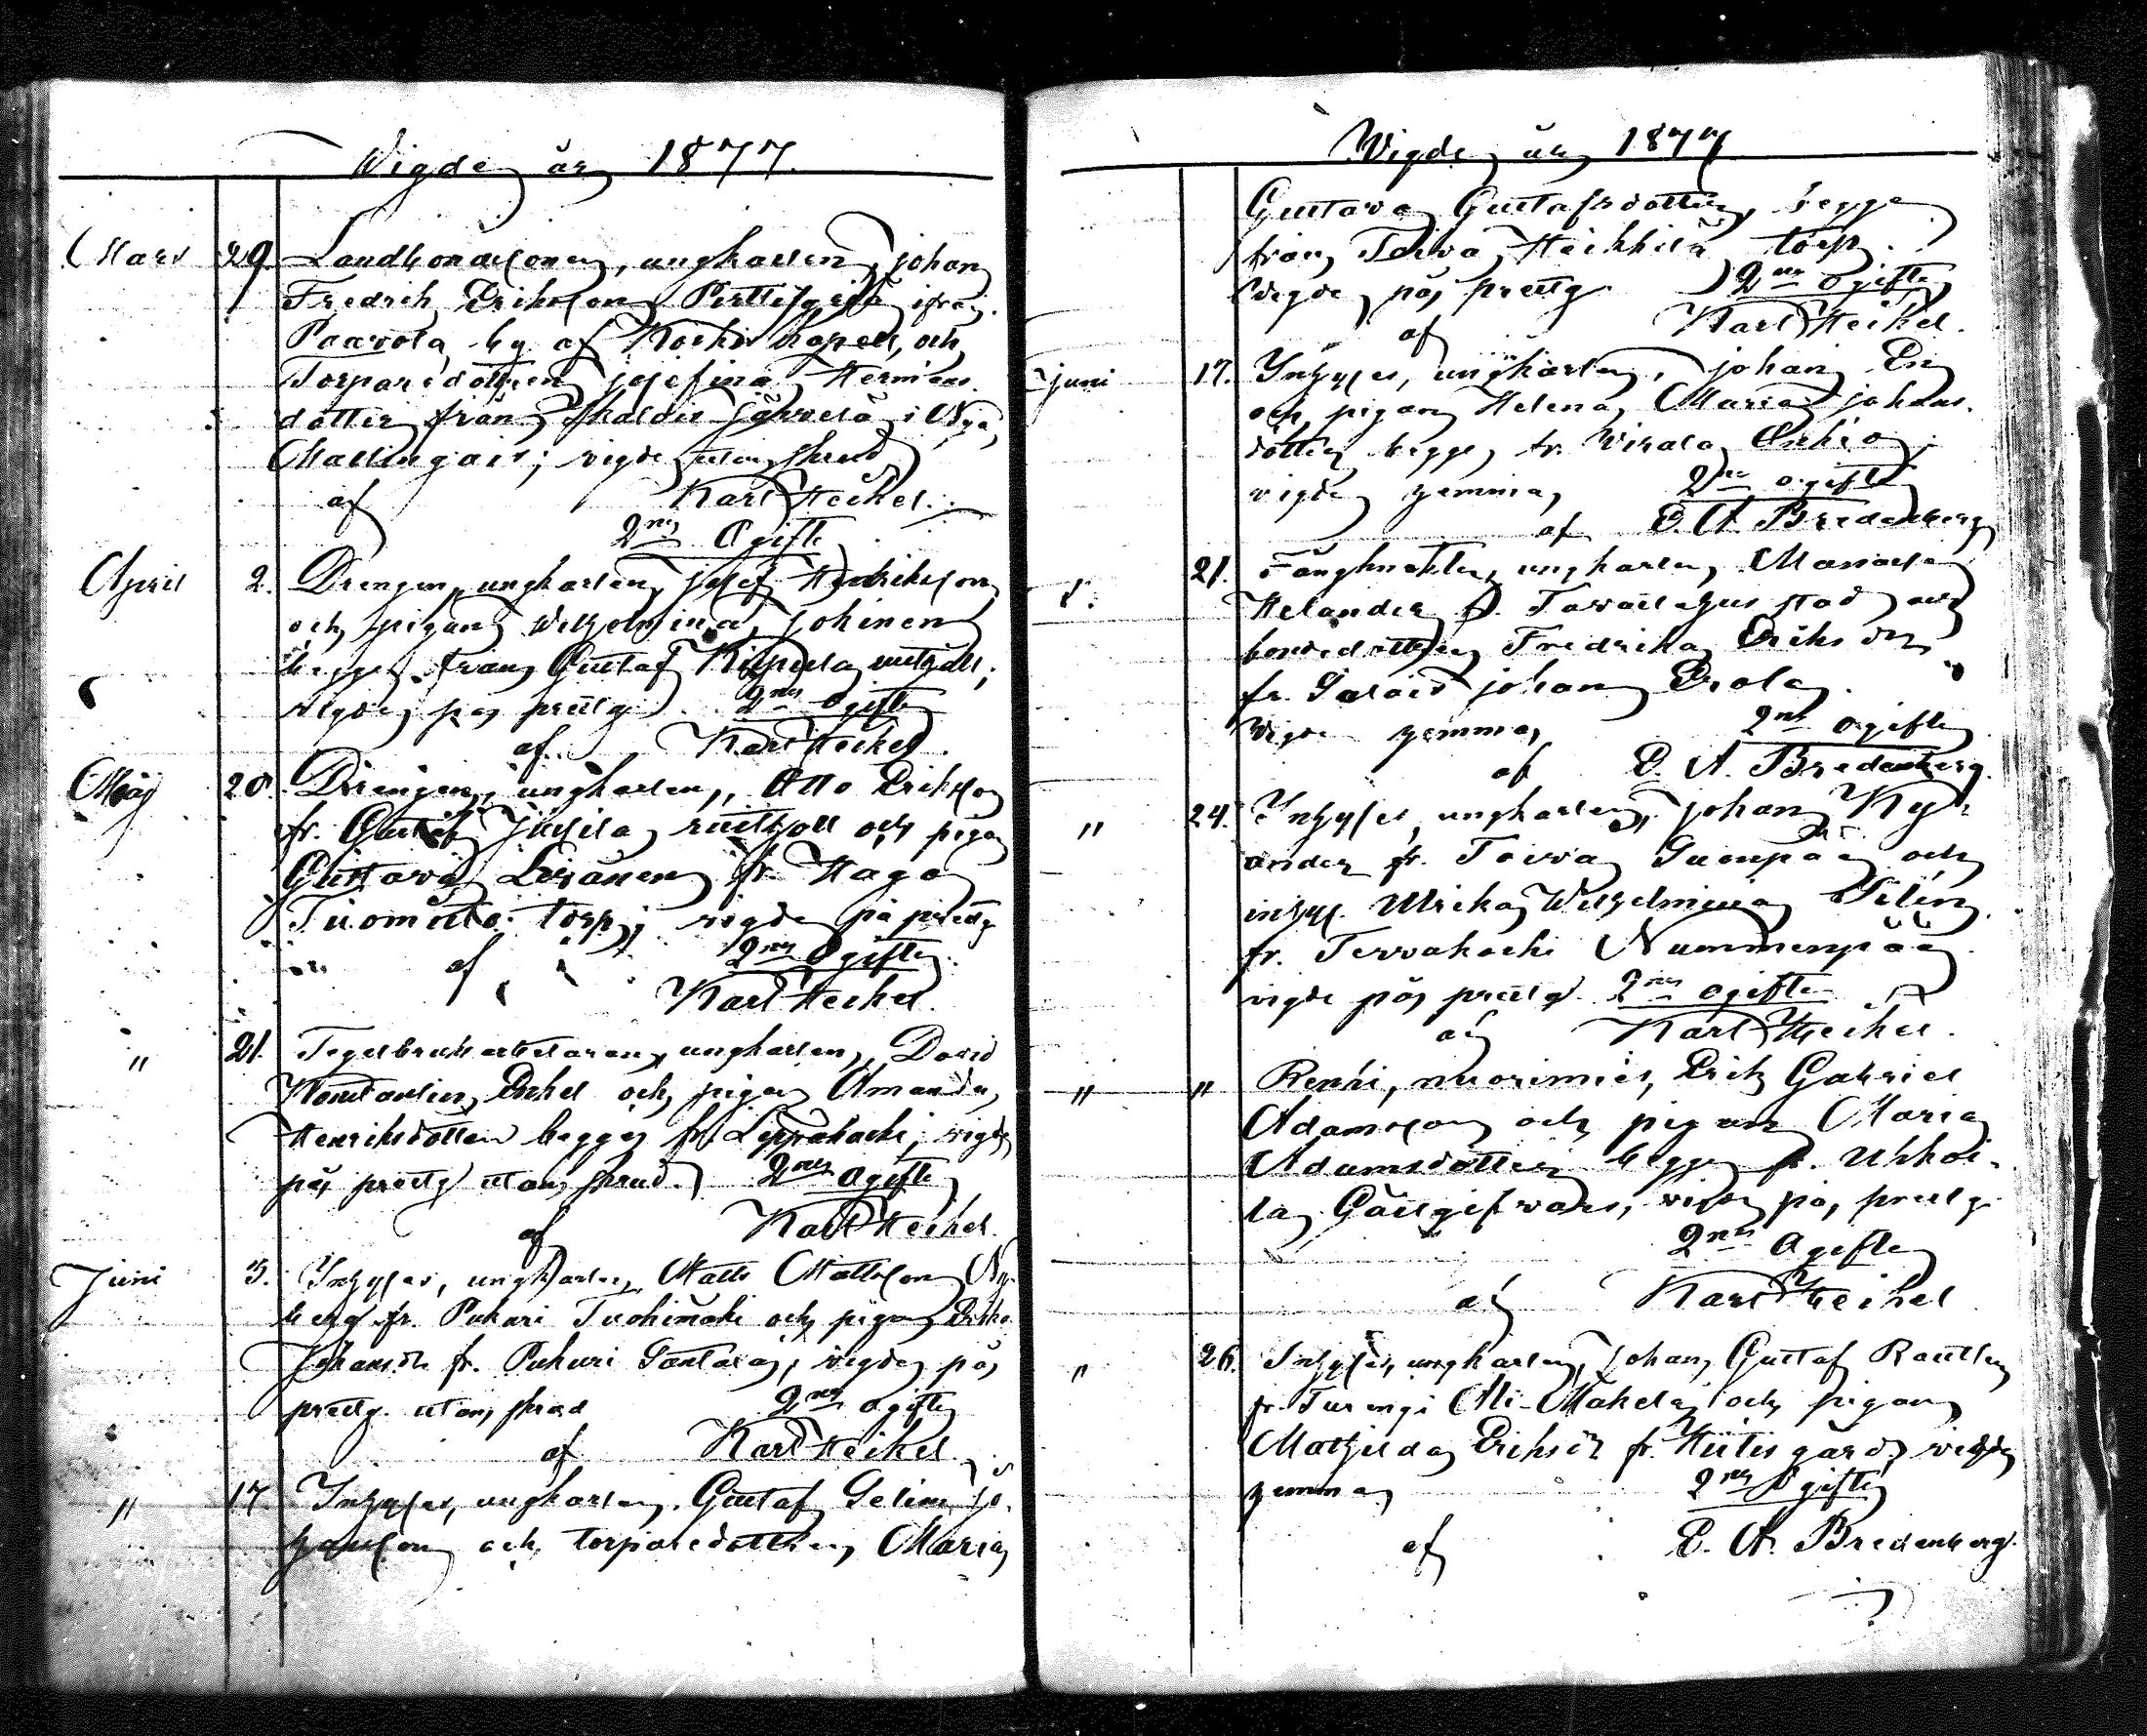 Wigde år 1877.
Mars 29. Landbondesonen, ungkarlen, Johan
Fredrik Eriksson Perttilä ifrån
Paavola by af Koski kapell, och
Torparedottren Josefina Hermans
dotter från Skaldis Järvelä i Nya
Mallingais; vigde utan skrud
af Karl Heikel.
2ne Ogifte
April 2. Drengen, ungkarlen, Josef Henriksson
och pigan Wilhelmina Johinen
begge från Gustaf Rusthåll;
vigde på prestg. 2ne Ogifte
af Karl Heikel.
Maj 20. Drengen, ungkarlen, Otto Eriksson
fr. Gustaf Jussila rusthåll och pigan
Gustava Leränen fr. Haga
Tuomitto torp; vigde på prestg
2ne Ogifte
af
Karl Heikel.
" 21. Tegelbruksarbetaren, ungkarlen, David
Konstantin Enkel och pigan Amanda
Henriksdotter begge fr. Leppäkoski; vigde
på prestg utan skrud. 2ne Ogifte
af Karl Heikel.
Juni 3. Inhyses, ungkarlen, Matts Mattsson Ny-
berg fr. Puhuri Tuohimäki och pigan Erika
Johansdr fr. Puhuri Santala; vigde på
prestg. utan skrud 2ne ogifte
af Karl Heikel.
" 17. Inhyses, ungkarlen, Gustaf Selim Jo-
hansson och torparedottren Maria
Wigde år 1877
Gustava Gustafsdotter, begge
från Toiva Heikkilä torp.
Vigde på prestg. 2ne ogifte
af Karl Heikel.
Juni 17. Inhyses, ungkarlen, Johan En
och pigan Helena Maria Johans-
dotter begge fr. Wirala Onkio;
vigde hemma, 2ne ogifte
af E. A. Bredenberg
" 21. Fångknekten, ungkarlen, Manasse
Helander fr. Tavastehus stad och
bondedottren Fredrika Eriksdr
fr. Salois Johan Erola.
Vigde hemma, 2ne ogifte
af E. A. Bredenberg.
" 24. Inhyses, ungkarlen, Johan Ky-
ander fr. Toiva Suonpää och
inhys. Ulrika Wilhelmina Silén
fr. Tervakoski Nummenpää
vigde på prestg. 2ne ogifte
af Karl Heikel.
" " Renki, nuorimies, Erik Gabriel
Adamsson och pigan Maria
Adamsdotter begge fr. Uhkoi-
la Gästgifvars, vigde på prestg.
2ne Ogifte
af Karl Heikel
" 26. Inhyses, ungkarlen, Johan Gustaf Rautln
fr. Turengi Ali-Mäkelä och pigan
Mathilda Eriksdr fr. Hiitis gård, vigde
hemma 2ne Ogifte
af E. A. Bredenberg.